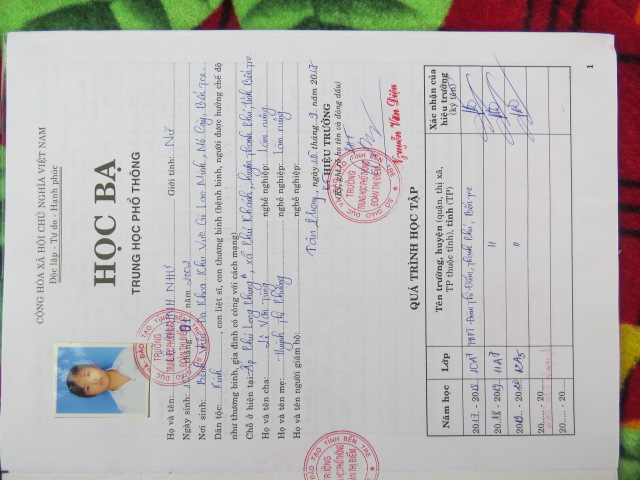 CỘNG HÒA XÃ HỘI CHỦ NGHĨA VIỆT NAM
Độc lập - Tự do - Hạnh phúc
HỌC BẠ
TRUNG HỌC PHỔ THÔNG
Họ và tên: LÊ HUỲNH NHƯ Giới tính: Nữ
Ngày sinh: tháng 01 năm 2002
Nơi sinh: Bệnh Viện Đa Khoa Khu Vực Cù Lao Minh, Mỏ Cày, Bến Tre
Dân tộc: Kinh, con liệt sĩ, con thương binh (bệnh binh, người được hưởng chế độ
như thương binh, gia đình có công với cách mạng)
Chỗ ở hiện tại: Ấp Phú Long Phụng A, xã Phú Khánh, huyện Thạnh Phú, tỉnh Bến Tre
Họ và tên cha: Lê Văn nghề nghiệp: Làm ruộng
Họ và tên mẹ: Huỳnh Thị nghề nghiệp: Làm ruộng
Họ và tên người giám hộ: nghề nghiệp:
ngày 10 tháng 9 năm 2017
HIỆU TRƯỞNG
(Ký, ghi rõ họ tên và đóng dấu)
SỞ GIÁO DỤC VÀ ĐÀO TẠO TỈNH BẾN TRE
TRƯỜNG
TRUNG HỌC PHỔ THÔNG
ĐOÀN THỊ ĐIỂM
Nguyễn Văn Diệu
QUÁ TRÌNH HỌC TẬP
Năm học Lớp Tên trường, huyện (quận, thị xã, TP thuộc tỉnh), tỉnh (TP) Xác nhận của hiệu trưởng (ký tên)
2017 - 2018 10A7 THPT Đoàn Thị Điểm, Thạnh Phú, Bến Tre
2018 - 2019 11A7 "
2019 - 2020 12A5 "
20..... - 20.....
20..... - 20.....
1